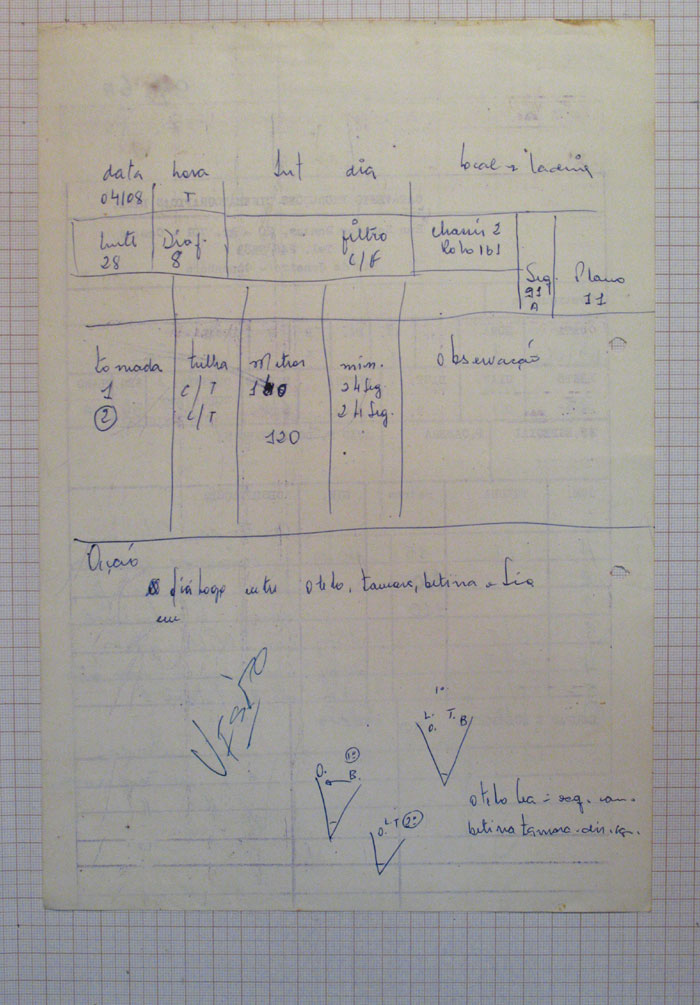 data hora Int dia Local =
04/08 T
Lente Diaf. filtro chassis 2
28 8 C/F Rolo 161
Seq. Plano
91 11
A
tomada trilha Metros min. Observação
1 C/T 24 Seg.
2 C/T 24 Seg.
120
Ação
diálogo entre Otelo, tamara, betina e Lia
em
1º
L. T. B
O.
O. 1º B.
O. L T 2º
otelo Lia = esq. cam.
betina tamara = dir.